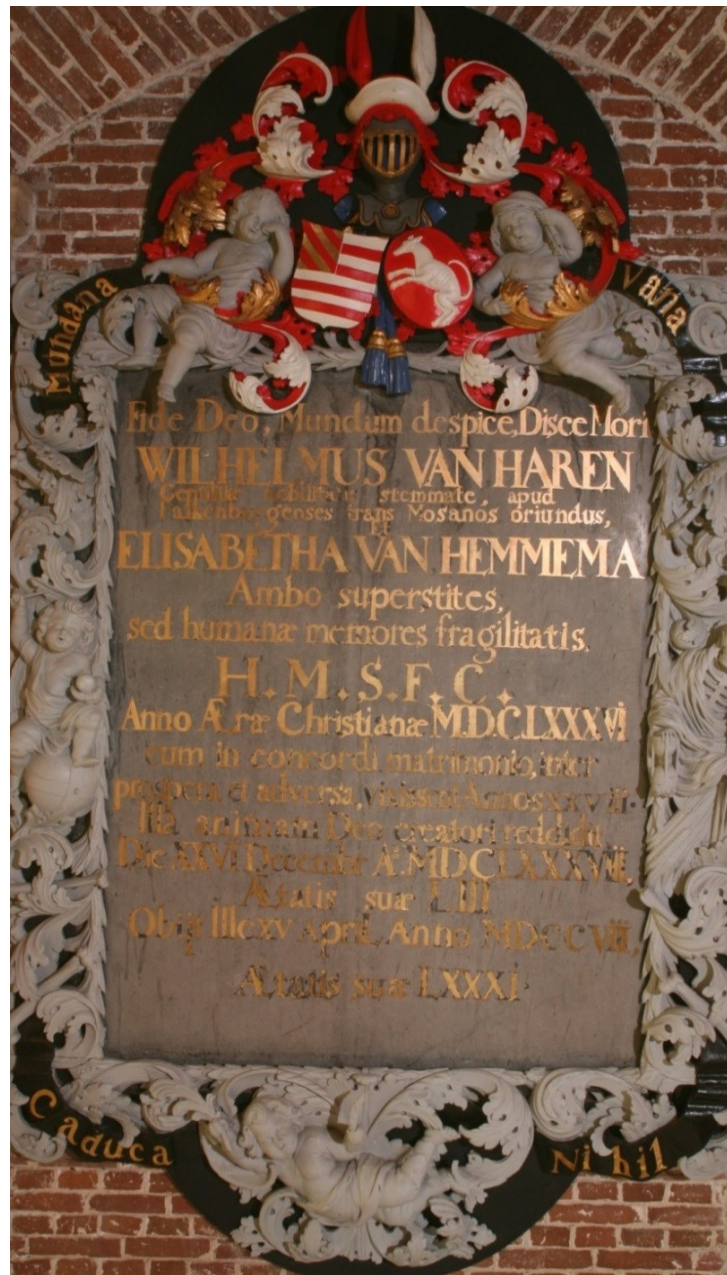 Mundana
vana
Fide Deo, Mundum despice, Disce Mori
WILHELMUS VAN HAREN
stemmate, apud
Falkenburgenses trans Mosanos oriundus,
ET
ELISABETHA VAN HEMMEMA
Ambo superstites,
sed humanæ memores fragilitatis.
H. M. S. F. C.
Anno Æræ Christianæ MDCLXXXVI
cum in concordi matrimonio, inter
prospera et adversa, vixissent Annos XXVII.
Illa animam Deo creatori reddidit
Die XXVI Decembr A. MDCLXXXVIII,
Ætatis suæ LIII
Obijt Ille XV April. Anno MDCCVIII,
Ætatis suæ LXXXI.
Caduca
Nihil